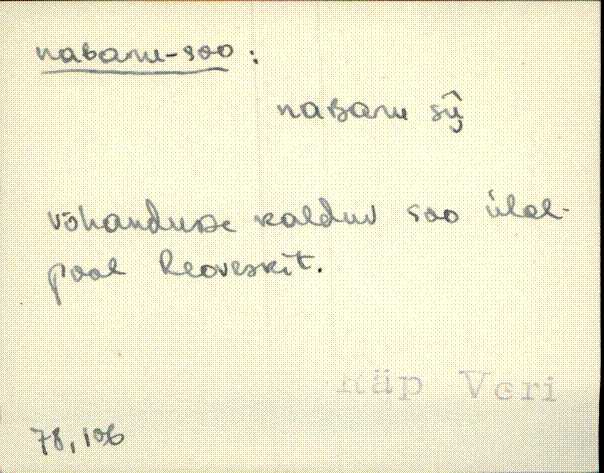 nabaru-soo:
naʙaru sū̬
võhandusse kalduv soo ülal-
pool Leoveskit.
Räp Veri
78, 106